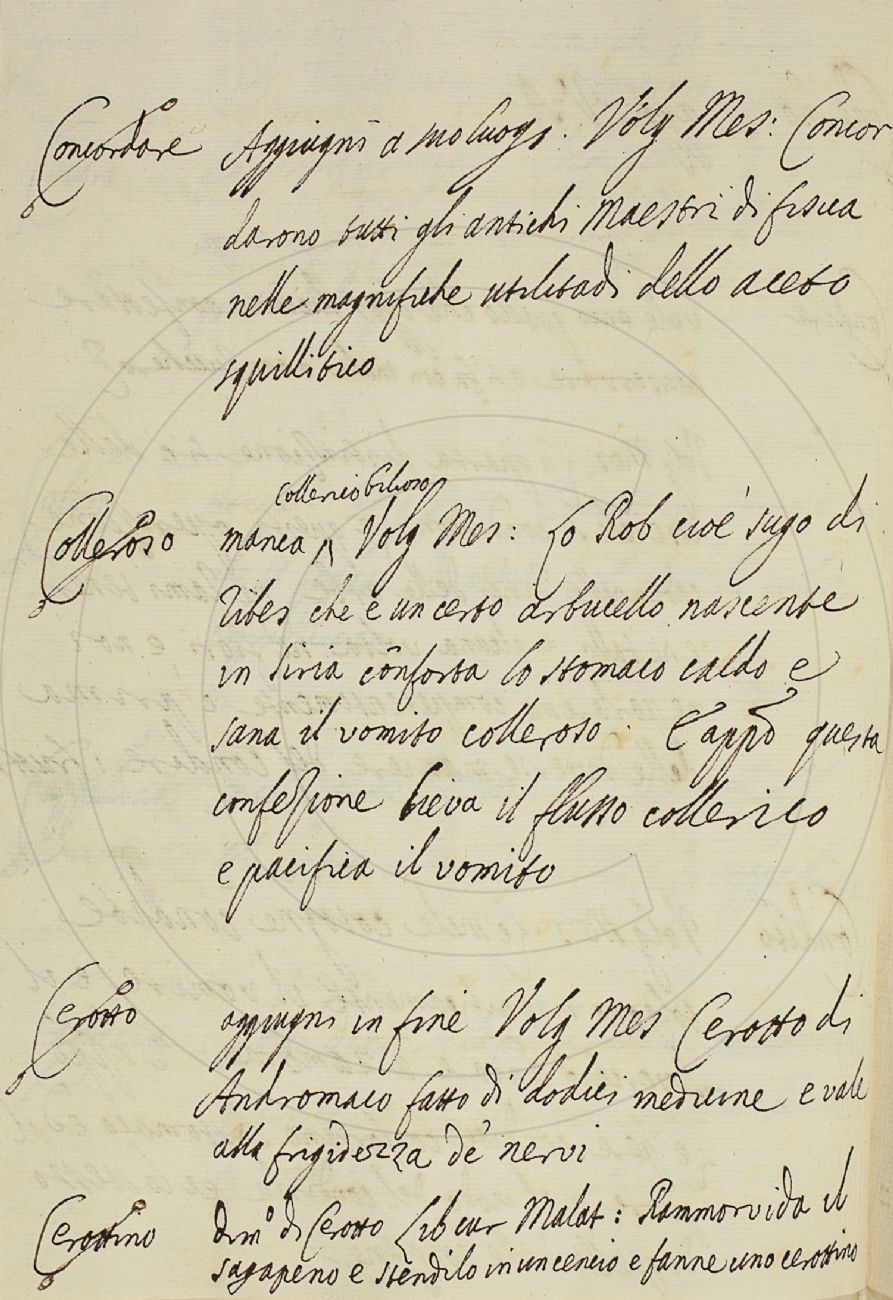 Concordare Aggiugni a suo luogo. Volg Mes: Concor
darono tutti gli antichi Maestri di fisica
nelle magnifiche utilitadi dello aceto
squillitico
collerico bilioso
Colleroso manca ʌ Volg Mes: Lo Rob cioè sugo di
ribes che è un certo arbucello nascente
in Siria cōnforta lo stomaco caldo e
sana il vomito colleroso. E appō questa
confezione lieva il flusso collerico
e pacifica il vomito
Cerotto aggiugni in fine Volg Mes Cerotto di
Andromaco fatto di dodici medicine e vale
alla frigidezza de' nervi
Cerottino dimo di Cerotto Lib cur Malat: Rammorvida il
sagapeno e stendilo in un cencio e fanne uno cerottino